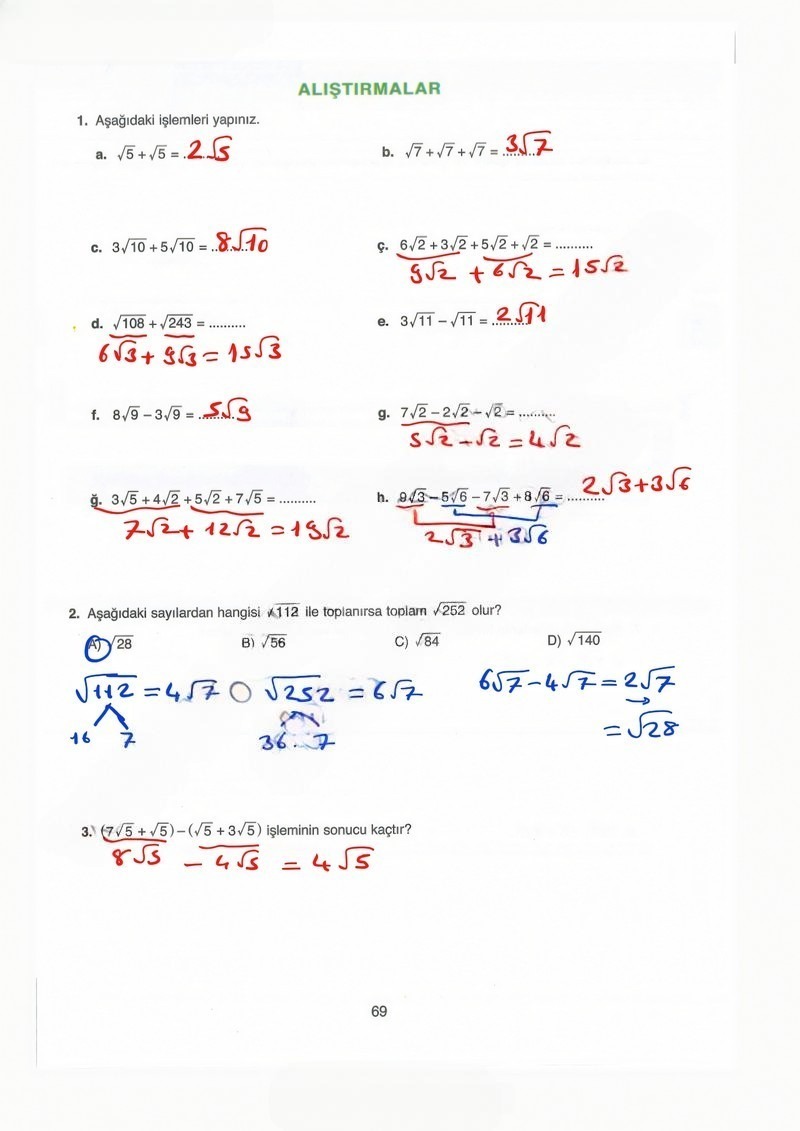 ALIŞTIRMALAR
1. Aşağıdaki işlemleri yapınız.
a. √5 + √5 = .2√5
b. √7 + √7 + √7 = ...3√7...
c. 3√10 + 5√10 = ..8√10
ç. 6√2 + 3√2 + 5√2 + √2 = ..........
9√2 + 6√2 = 15√2
d. √108 + √243 = ..........
6√3 + 9√3 = 15√3
e. 3√11 − √11 = ..2√11
f. 8√9 − 3√9 = ..5√9
g. 7√2 − 2√2 − √2 = ..........
5√2 − √2 = 4√2
ğ. 3√5 + 4√2 + 5√2 + 7√5 = ..........
7√2 + 12√2 = 19√2
h. 9√3 − 5√6 − 7√3 + 8√6 = .......... 2√3 + 3√6
2√3 + 3√6
2. Aşağıdaki sayılardan hangisi √112 ile toplanırsa toplam √252 olur?
A) √28 B) √56 C) √84 D) √140
√112 = 4√7 √252 = 6√7 6√7 − 4√7 = 2√7
16 7 36 . 7 → = √28
3. (7√5 + √5) − (√5 + 3√5) işleminin sonucu kaçtır?
8√5 − 4√5 = 4√5
69